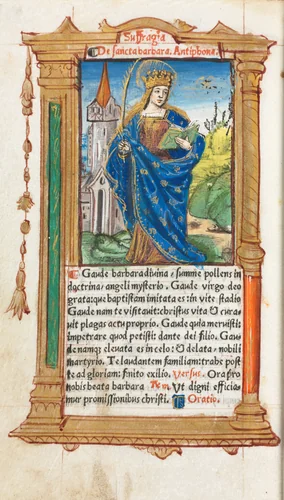 Suffragia
De sancta barbara. Antiphona.
Gaude barbara diuina / summe pollens in
doctrina / angeli mysterio. Gaude virgo deo
grata: que baptistam imitata es: in vite stadio
Gaude nam te visitauit: christus vita & cura
uit plagas actu proprio. Gaude quia meruisti:
impetrare quod petisti: dante dei filio. Gau-
de namqz eleuata es in celo: & delata / nobili
martyrio. Te laudantem familiam: trahe post
te ad gloriam: finito exilio. Versus. Ora pro
nobis beata barbara Resp. Ut digni efficia-
mur promissionibus christi. Oratio.